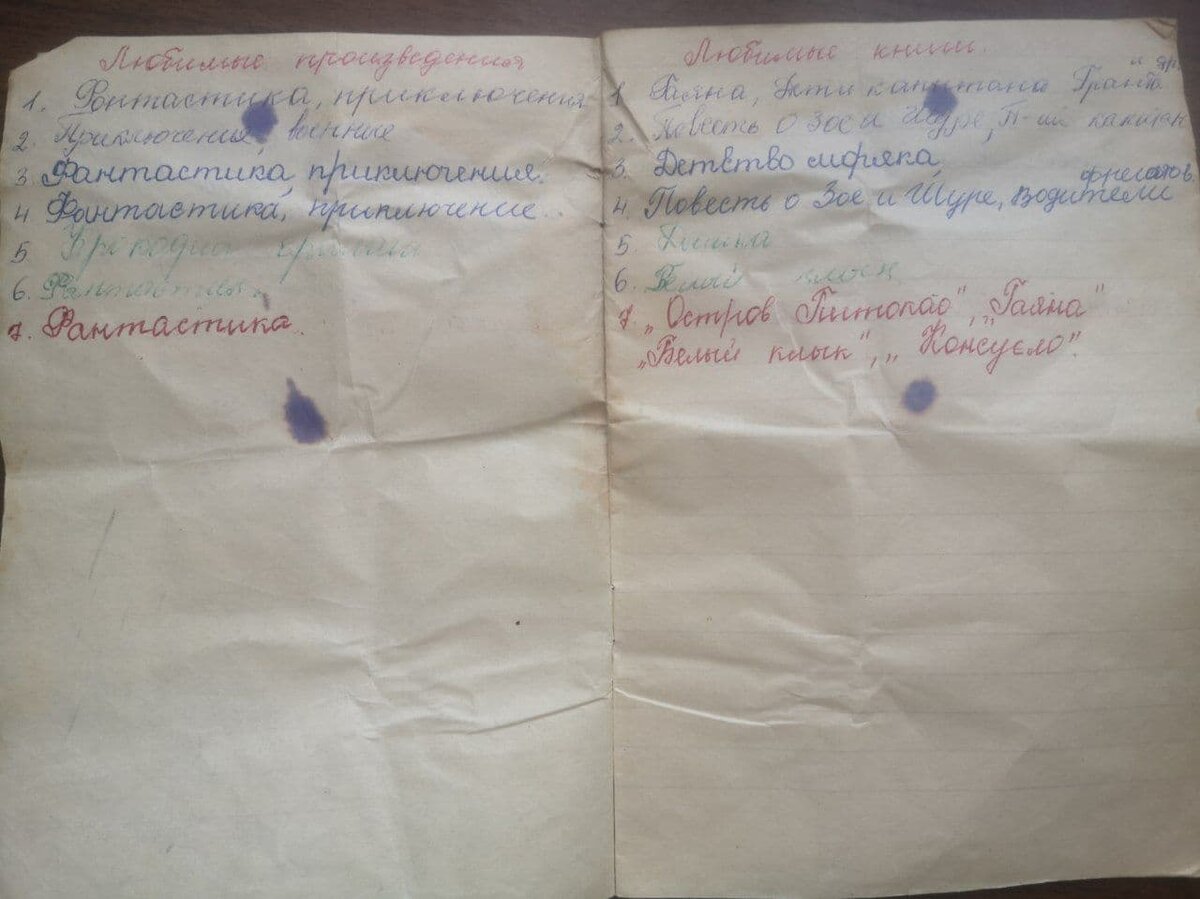 Любимые произведения
1. Фонтастика, приключения
2. Приключения, военные
3. Фантастика, приключения.
4. Фонтастика, приключение.
5. Крокодил
6.
7. Фантастика.
Любимые книги.
1. Гаяна, Дети капитана Гранта и др.
2. Повесть о Зое и Шуре, П-ий капитан
3. Детство
4. Повесть о Зое и Шуре, Водители фрегатов
5.
6. Белый клык
7. „Остров Питокао", „Гаяна"
„Белый клык", „Консуело".